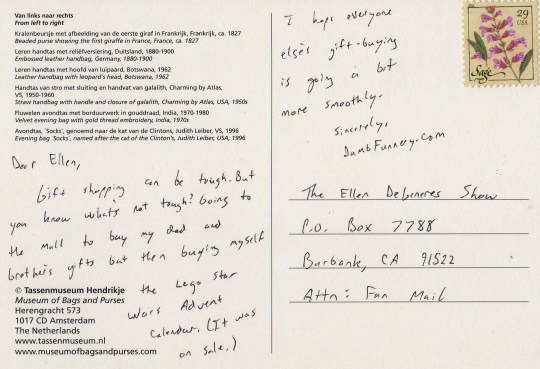 Van links naar rechts
From left to right
Kralenbeursje met afbeelding van de eerste giraf in Frankrijk, Frankrijk, ca. 1827
Beaded purse showing the first giraffe in France, France, ca. 1827
Leren handtas met reliëfversiering, Duitsland, 1880-1900
Embossed leather handbag, Germany, 1880-1900
Leren handtas met hoofd van luipaard, Botswana, 1962
Leather handbag with leopard's head, Botswana, 1962
Handtas van stro met sluiting en handvat van galalith, Charming by Atlas,
VS, 1950-1960
Straw handbag with handle and closure of galalith, Charming by Atlas, USA, 1950s
Fluwelen avondtas met borduurwerk in gouddraad, India, 1970-1980
Velvet evening bag with gold thread embroidery, India, 1970s
Avondtas, 'Socks', genoemd naar de kat van de Clintons, Judith Leiber, VS, 1996
Evening bag 'Socks', named after the cat of the Clinton's, Judith Leiber, USA, 1996
Dear Ellen,
Gift shopping can be tough. But
you know what's not tough? Going to
the mall to buy my dad and
brother's gifts but then buying myself
the Lego Star
Wars Advent
Calendar. (It was
on sale.)
I hope everyone
else's gift-buying
is going a bit
more smoothly.
Sincerely,
DumbFunnery.com
© Tassenmuseum Hendrikje
Museum of Bags and Purses
Herengracht 573
1017 CD Amsterdam
The Netherlands
www.tassenmuseum.nl
www.museumofbagsandpurses.com
29
USA
Sage
The Ellen DeGeneres Show
P.O. Box 7788
Burbank, CA 91522
Attn: Fan Mail